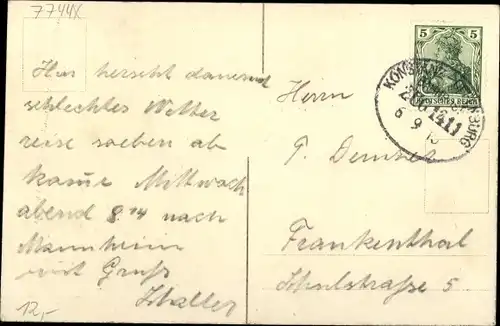 7744X
Hier herscht dauernd
schlechtes Wetter
reise soeben ab
komme Mittwoch
abend 8.14 nach
Mannheim
mit Gruß
Schaller
12,-
5 5
DEUTSCHES REICH
KONSTANZ
1411
6 9
Herrn
P. Demset
Frankenthal
Schulstraße 5